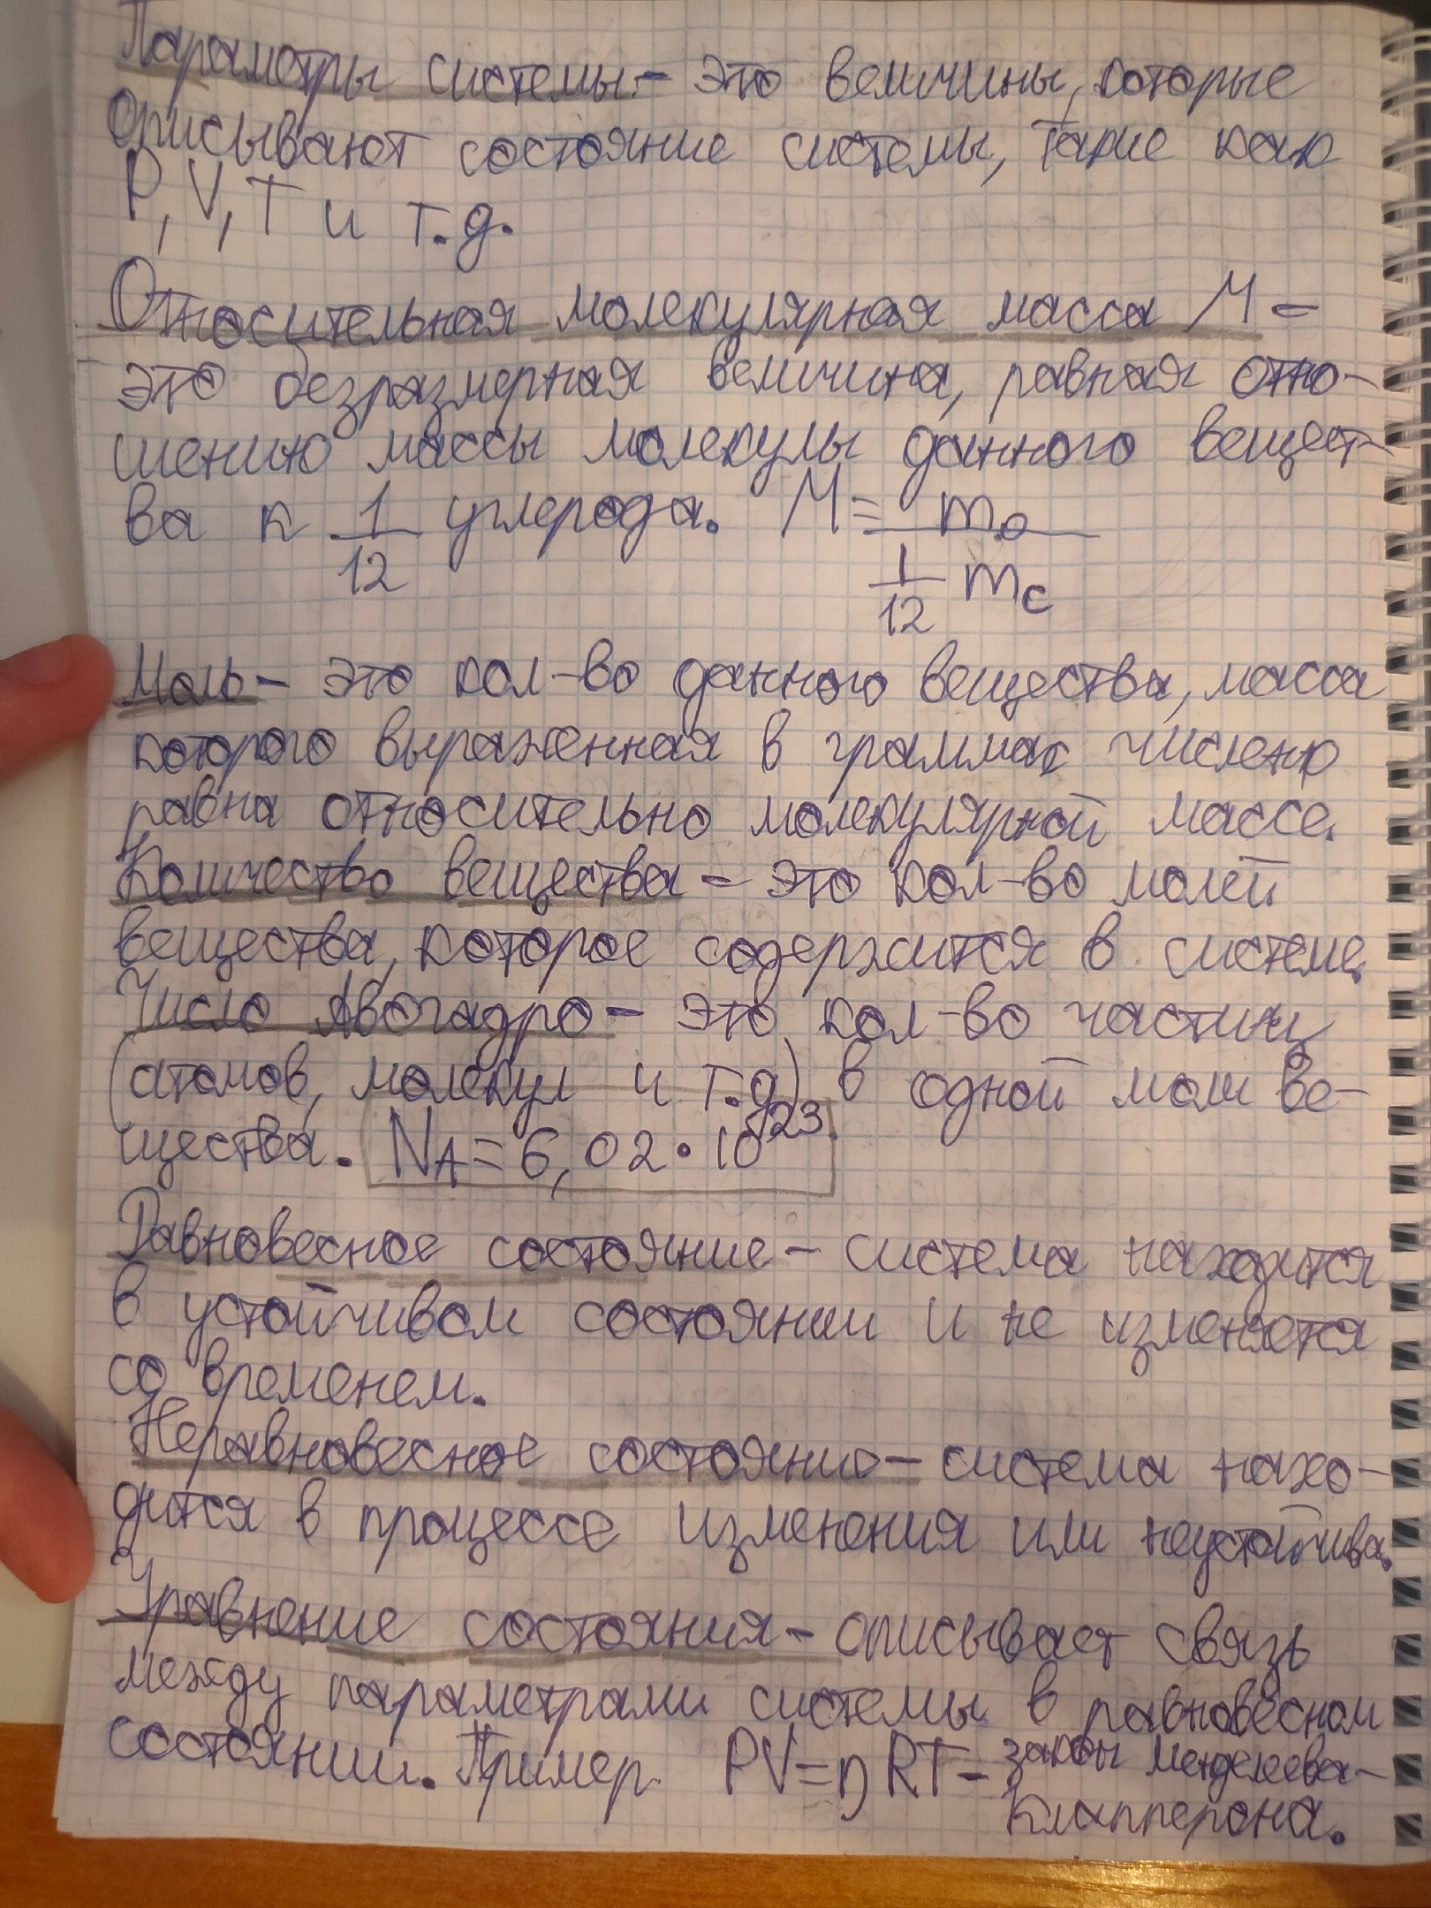 Параметры системы - это величины, которые
описывают состояние системы, такие как
P, V, T и т.д.
Относительная молекулярная масса M -
это безразмерная величина, равная отно-
шению массы молекулы данного вещест-
ва к 1/12 углерода. M = m₀ / (1/12 m_C)
Моль - это кол-во данного вещества, масса
которого выраженная в граммах числено
равна относительно молекулярной массе.
Количество вещества - это кол-во молей
вещества, которое содержится в системе.
Число Авогадро - это кол-во частиц
(атомов, молекул и т.д) в одной моли ве-
щества. N_A = 6,02 · 10²³.
Равновесное состояние - система находится
в устойчивом состоянии и не изменяется
со временем.
Неравновесное состояние - система нахо-
дится в процессе изменения или неустойчива.
Уравнение состояния - описывает связь
между параметрами системы в равновесном
состоянии. Пример. PV = nRT - законы Менделеева-
Клапперона.